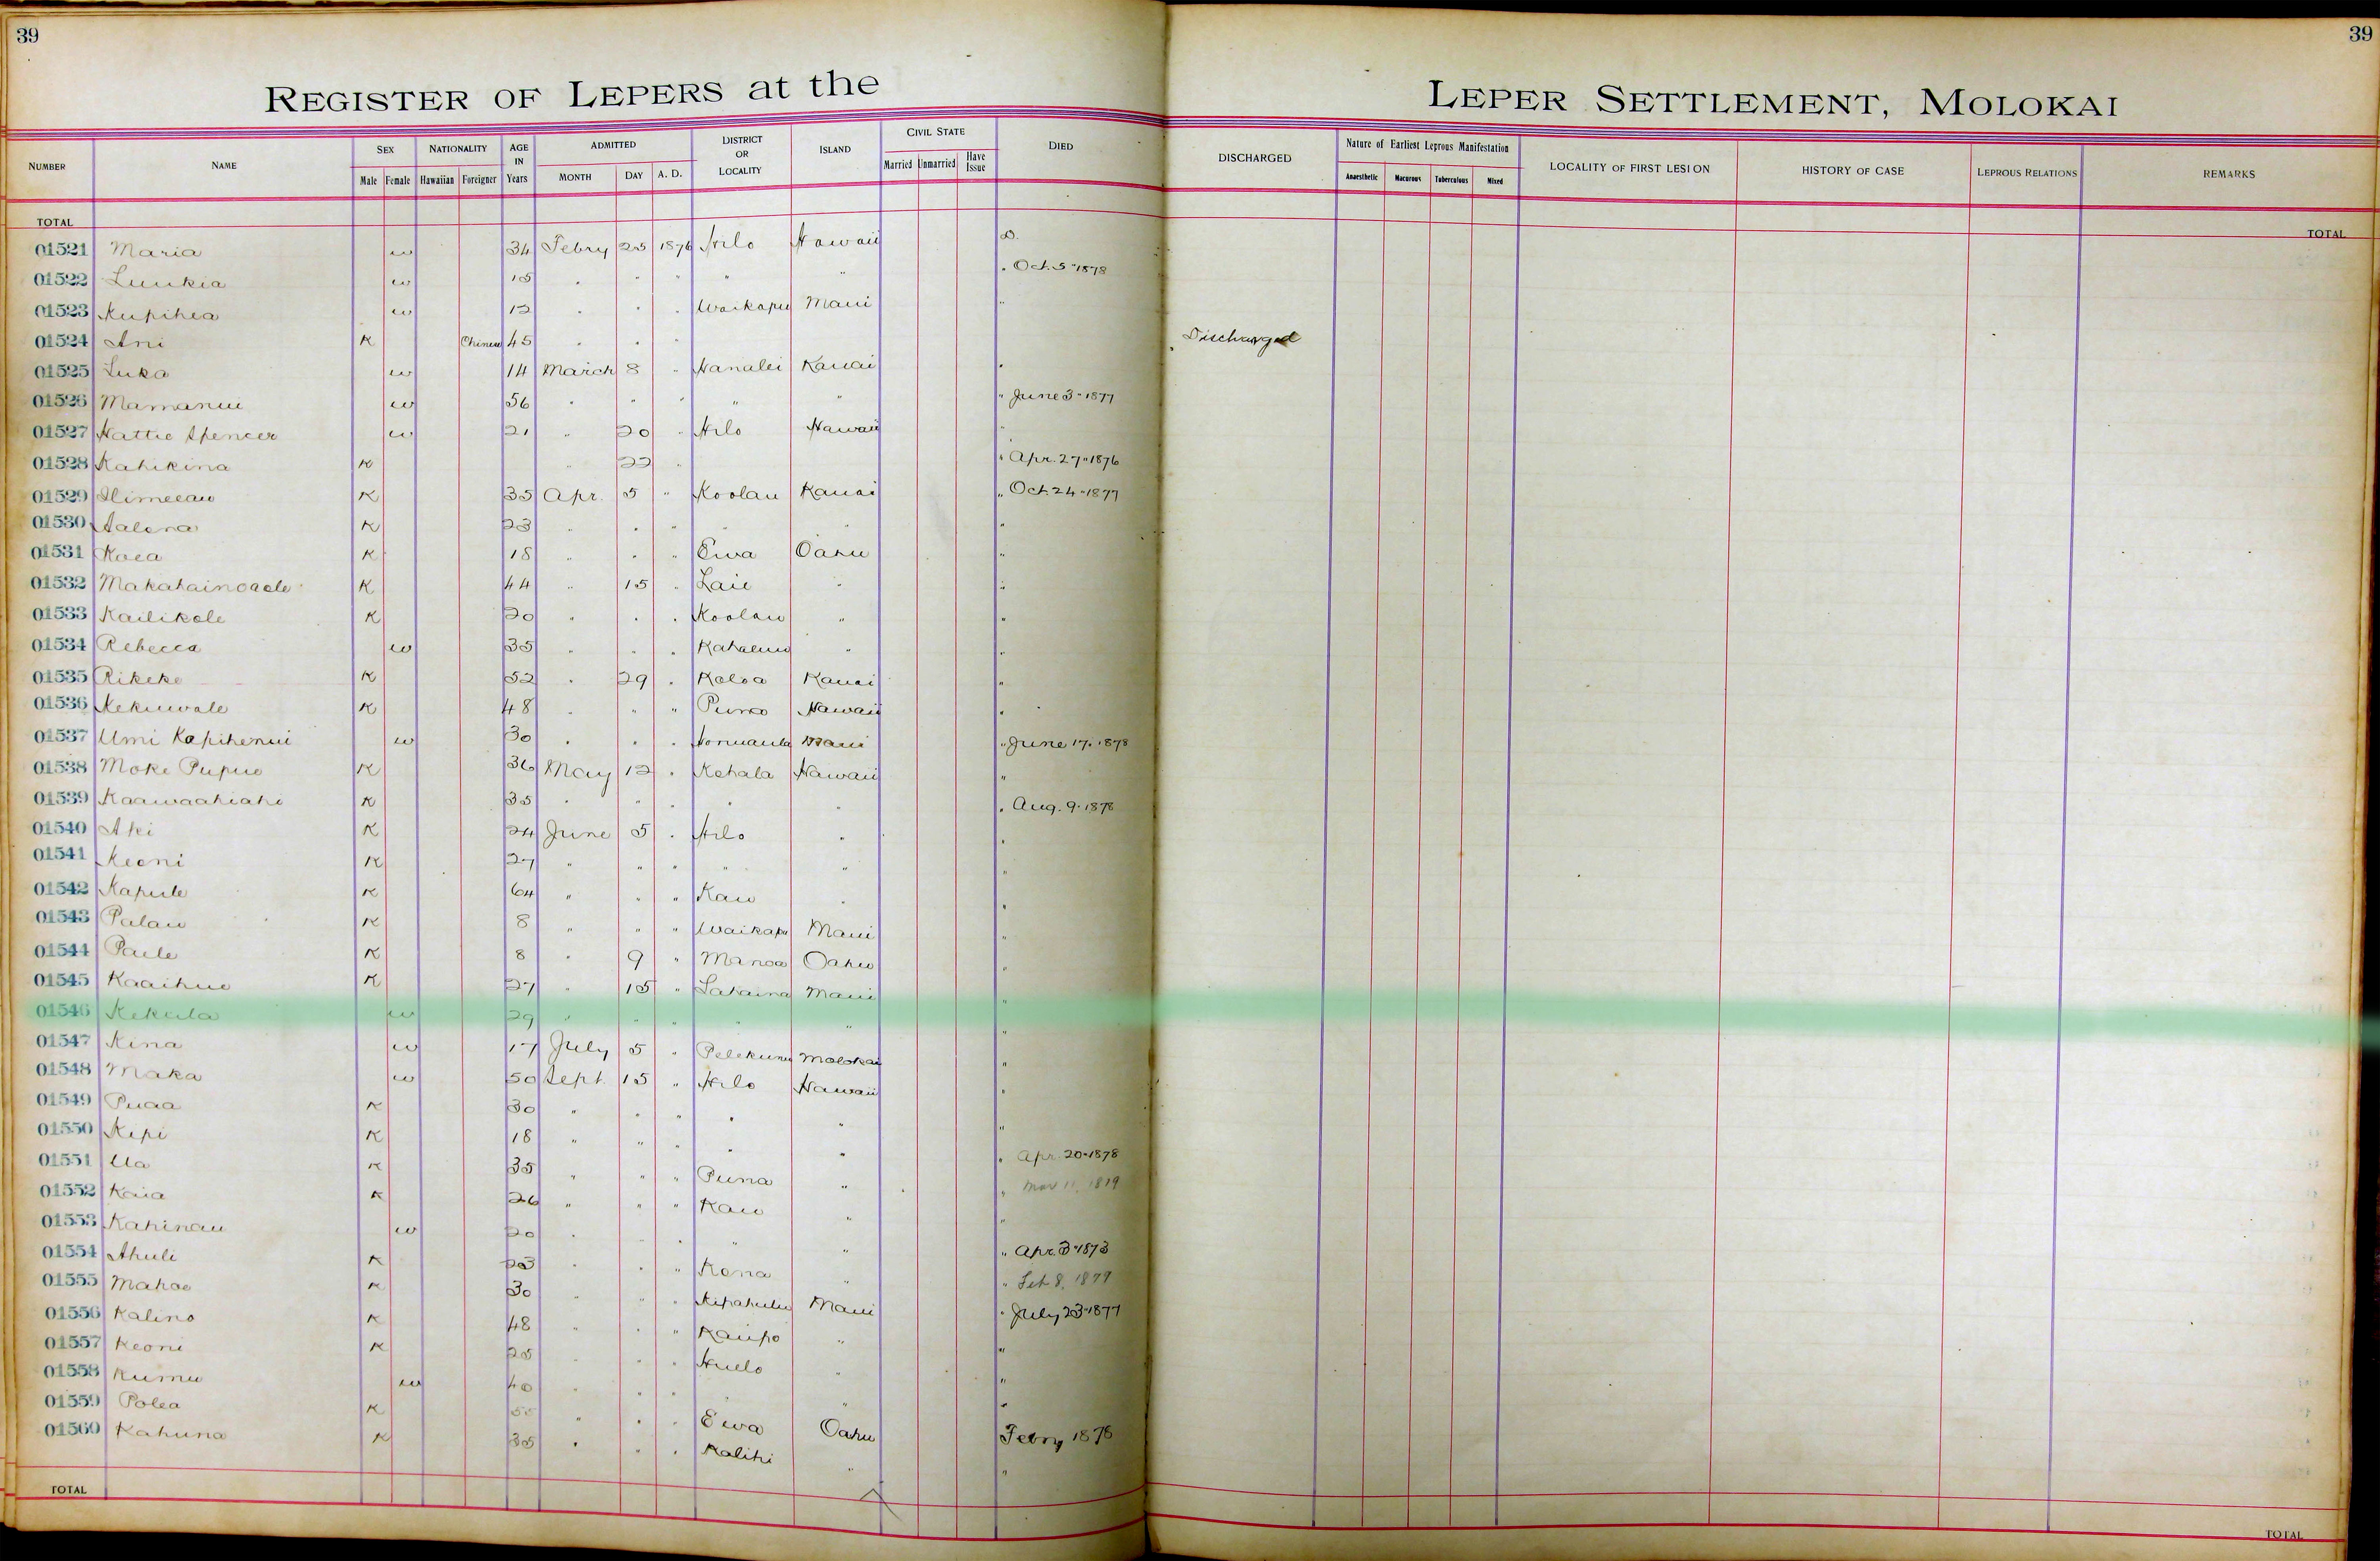 39 39
REGISTER OF LEPERS at the LEPER SETTLEMENT, MOLOKAI
NUMBER NAME SEX Male Female NATIONALITY Hawaiian Foreigner AGE IN Years ADMITTED MONTH DAY A. D. DISTRICT OR LOCALITY ISLAND CIVIL STATE Married Unmarried Have Issue DIED DISCHARGED Nature of Earliest Leprous Manifestation Anaesthetic Macurous Tuberculous Mixed LOCALITY OF FIRST LESION HISTORY OF CASE LEPROUS RELATIONS REMARKS
TOTAL TOTAL
01521 Maria w 34 Febry 25 1876 Hilo Hawaii D.
01522 Luukia w 15 " " " " " " Oct. 5 " 1878
01523 Kupihea w 12 " " " Waikapu Maui "
01524 Ani K Chinese 45 " " " Discharged
01525 Luka w 14 March 8 " Hanalei Kauai "
01526 Mamanui w 56 " " " " " " June 3 " 1877
01527 Hattie Spencer w 21 " 20 " Hilo Hawaii "
01528 Kahikina K " 22 " " Apr. 27 " 1876
01529 K 35 Apr. 5 " Koolau Kauai " Oct. 24 " 1877
01530 Aalona K 23 " " " " " "
01531 Koea K 18 " " " Ewa Oahu "
01532 Makahainoaole K 44 " 15 " Laie " "
01533 Kailikole K 20 " " " Koolau " "
01534 Rebecca w 35 " " " Kahaluu " "
01535 Rikeke K 52 " 29 " Koloa Kauai "
01536 Kekuwale K 48 " " " Puna Hawaii "
01537 Umi Kapihenui w 30 " " " Honuaula Maui " June 17. 1878
01538 Moke Pupue K 36 May 12 " Kohala Hawaii "
01539 Kaawaahiahi K 35 " " " " " " Aug. 9. 1878
01540 Aki K 24 June 5 " Hilo " "
01541 Keoni K 27 " " " " " "
01542 Kapule K 64 " " " Kau " "
01543 Palau K 8 " " " Waikapu Maui "
01544 Paele K 8 " 9 " Manoa Oahu "
01545 Kaaihue K 27 " 15 " Lahaina Maui "
01546 Kekula w 29 " " " " " "
01547 Kina w 17 July 5 " Pelekunu Molokai "
01548 Maka w 50 Sept. 15 " Hilo Hawaii "
01549 Puaa K 30 " " " " " "
01550 Kepi K 18 " " " " " "
01551 Ua K 35 " " " Puna " " Apr. 20 " 1878
01552 Kaia K 26 " " " Kau " " Mar 11, 1879
01553 Kahinau w 20 " " " " " "
01554 Ahuli K 23 " " " Kona " " Apr. 3 " 1873
01555 Mahoe K 30 " " " Kipahulu Maui " Feb 8, 1879
01556 Kalino K 48 " " " Kaupo " " July 23 " 1877
01557 Keoni K 25 " " " Huelo " "
01558 Kumu w 40 " " " " "
01559 Polea K 55 " " " Ewa Oahu "
01560 Kahuna K 35 " " " Kalihi " Febry 1878
TOTAL TOTAL